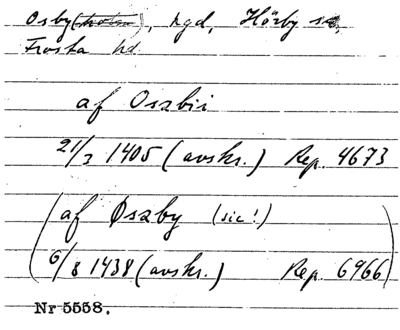 Osby, ngd, Hörby sn,
Frosta hd
af Oszbii
21/3 1405 (avskr.) Rep. 4673
(af Øszby (sic!)
6/8 1438 (avskr.) Rep. 6966)
Nr 5558.